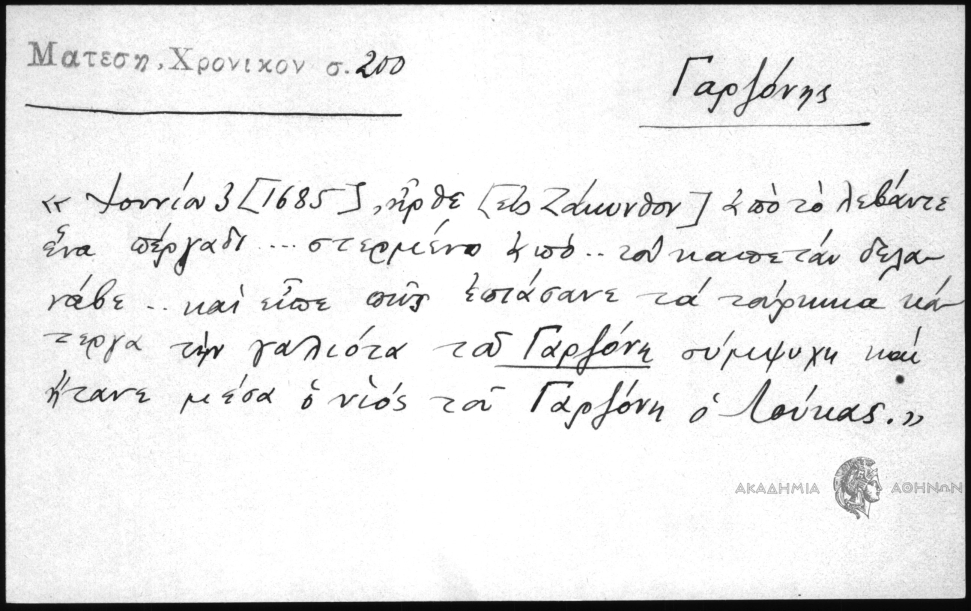 Ματεση, Χρονικον σ. 200
Γαρζόνης
« Ἰουνίου 3 [1685], ἦρθε [εἰς Ζάκυνθον] ἀπὸ τὸ λεβάντε
ἕνα πέργαδι .... στερμένο ἀπὸ .. τοῦ καπετάν δελα-
νάβε .. καὶ εἶπε πῶς ἐπιάσανε τὰ τούρκικα κά-
τεργα τὴν γαλιότα τοῦ Γαρζόνη σύμψυχη καὶ
ἤτανε μέσα ὁ υἱός τοῦ Γαρζόνη ὁ Λούκας. »
ΑΚΑΔΗΜΙΑ ΑΘΗΝΩΝ